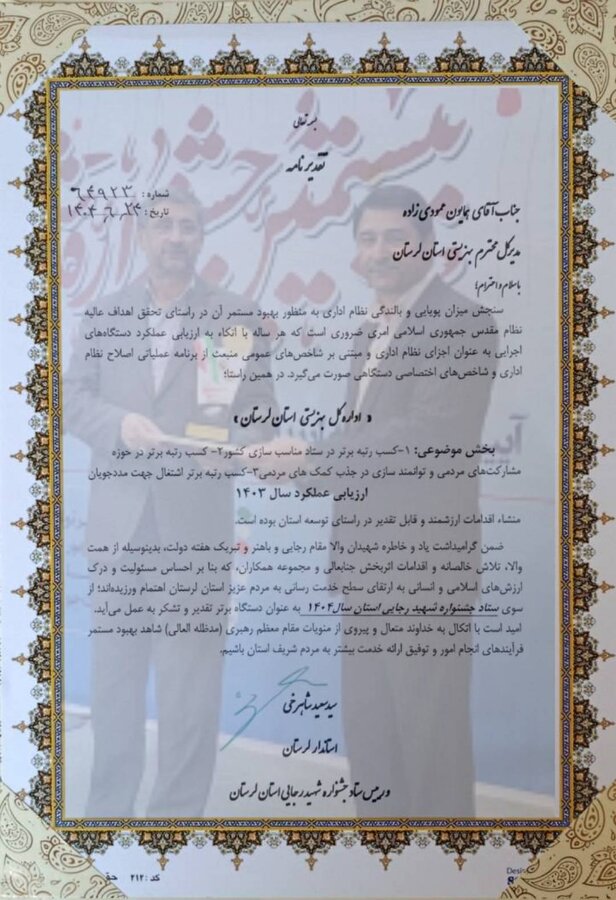 بسمه تعالی
تقدیرنامه
شماره : ۶۴۹۲۳
تاریخ : ۱۴۰۴٫۶٫۲۴
جناب آقای همایون محمودی زاده
مدیرکل محترم بهزیستی استان لرستان
باسلام و احترام؛
سنجش میزان پویایی و بالندگی نظام اداری به منظور بهبود مستمر آن در راستای تحقق اهداف عالیه
نظام مقدس جمهوری اسلامی امری ضروری است که هر ساله با اتکاء به ارزیابی عملکرد دستگاه‌های
اجرایی به عنوان اجزای نظام اداری و مبتنی بر شاخص‌های عمومی منبعث از برنامه عملیاتی اصلاح نظام
اداری و شاخص‌های اختصاصی دستگاهی صورت می‌گیرد. در همین راستا؛
« اداره کل بهزیستی استان لرستان »
بخش موضوعی: ۱-کسب رتبه برتر در ستاد مناسب سازی کشور۲- کسب رتبه برتر در حوزه
مشارکت‌های مردمی و توانمند سازی در جذب کمک های مردمی۳-کسب رتبه برتر اشتغال جهت مددجویان
ارزیابی عملکرد سال ۱۴۰۳
منشاء اقدامات ارزشمند و قابل تقدیر در راستای توسعه استان بوده است.
ضمن گرامیداشت یاد و خاطره شهیدان والا مقام رجایی و باهنر و تبریک هفته دولت، بدینوسیله از همت
والا، تلاش خالصانه و اقدامات اثربخش جنابعالی و مجموعه همکاران، که بنا بر احساس مسئولیت و درک
ارزش‌های اسلامی و انسانی به ارتقای سطح خدمت رسانی به مردم عزیز استان لرستان اهتمام ورزیده‌اند؛ از
سوی ستاد جشنواره شهید رجایی استان سال۱۴۰۴ به عنوان دستگاه برتر تقدیر و تشکر به عمل می‌آید.
امید است با اتکال به خداوند متعال و پیروی از منویات مقام معظم رهبری (مدظله العالی) شاهد بهبود مستمر
فرآیندهای انجام امور و توفیق ارائه خدمت بیشتر به مردم شریف استان باشیم.
سید سعید شاهرخی
استاندار لرستان
و رییس ستاد جشنواره شهید رجایی استان لرستان
کد : ۲۱۲